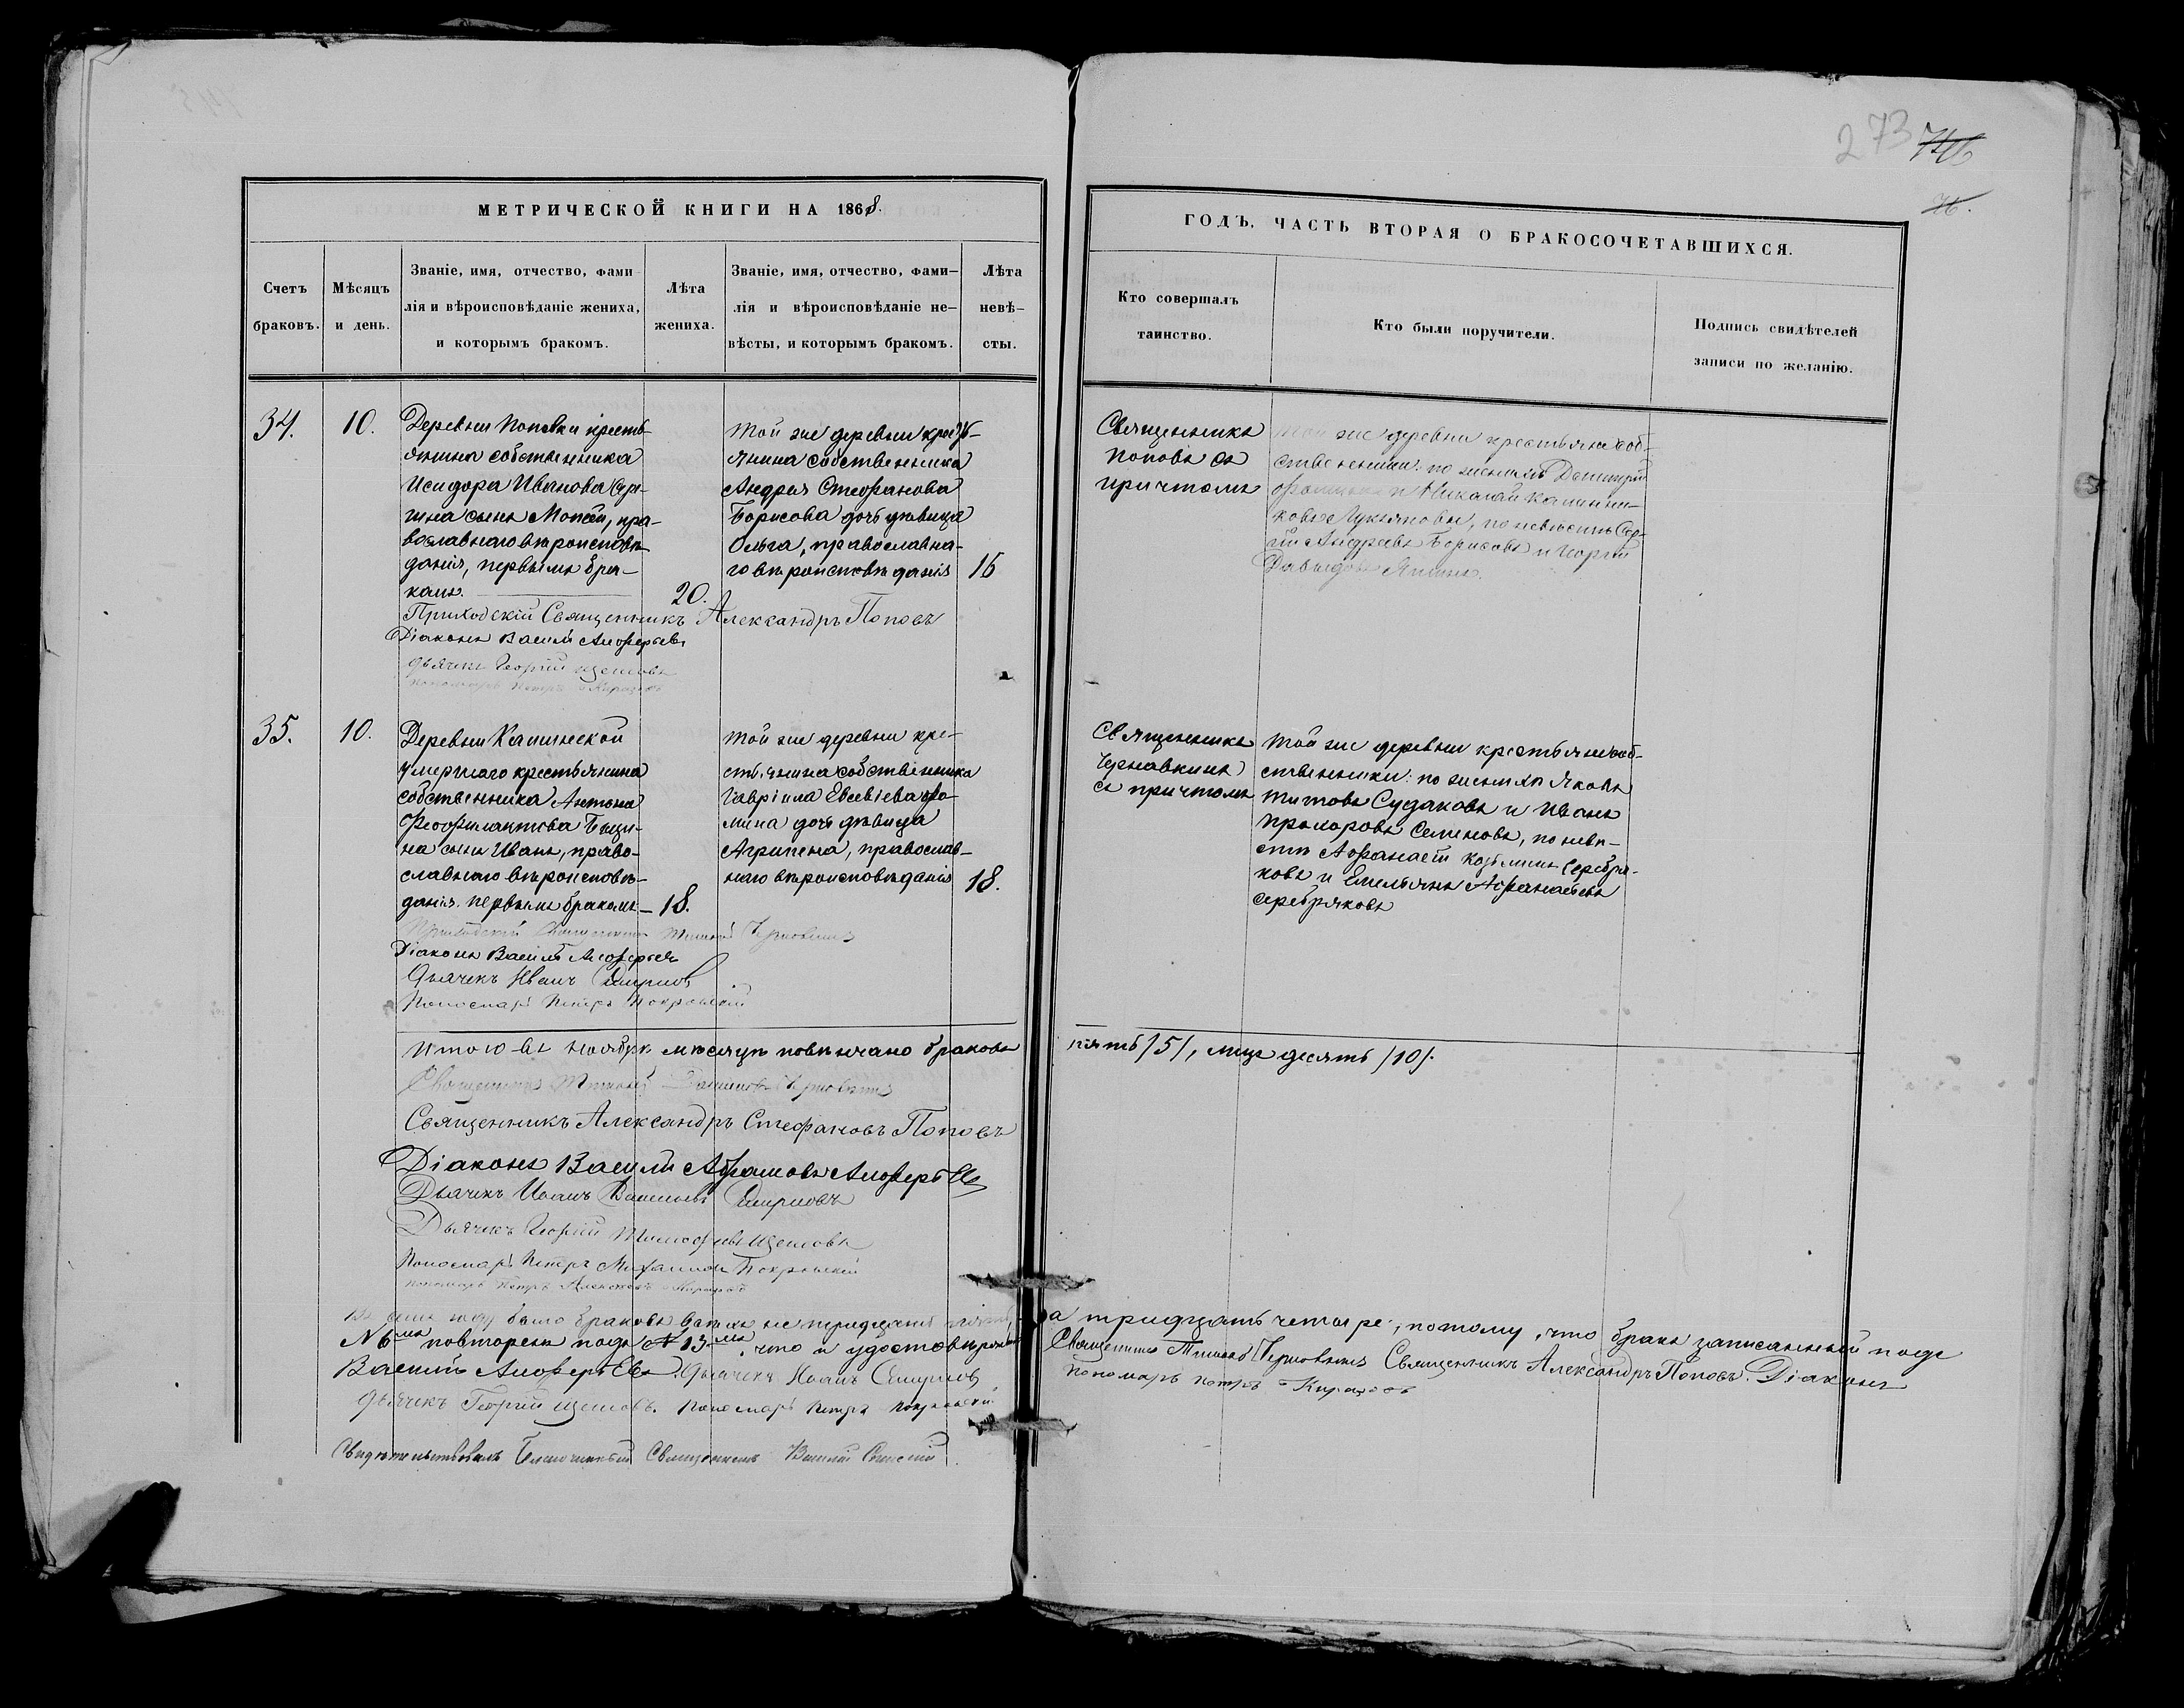 273 74б
76.
МЕТРИЧЕСКОЙ КНИГИ НА 1868.
ГОДЪ, ЧАСТЬ ВТОРАЯ О БРАКОСОЧЕТАВШИХСЯ.
Счетъ браковъ.
Мѣсяцъ и день.
Званіе, имя, отчество, фами
лія и вѣроисповѣданіе жениха,
и которымъ бракомъ.
Лѣта
жениха.
Званіе, имя, отчество, фами-
лія и вѣроисповѣданіе не-
вѣсты, и которымъ бракомъ.
Лѣта
невѣ-
сты.
Кто совершалъ
таинство.
Кто были поручители.
Подпись свидѣтелей
записи по желанію.
34.
10.
Деревни Поповки кресть-
янина собственника
Исидора Иванова
сынъ Моисей, пра-
вославнаго вѣроисповѣ-
данія, первымъ бра-
комъ.
20.
Той же деревни крест-
янина собственника
Андрея Стефанова
Борисова дочь дѣвица
Ольга, православна-
го вѣроисповѣданія
16
Священникъ
Поповъ съ
причтомъ
Той же деревни крестьяне соб-
ственники: по женихѣ Димитрій
и Николай Калинни-
ковъ Лукьяновы, по невѣстѣ Сер-
гій Андреевъ Борисовъ и Георгій
Давыдовъ
Приходскій Священникъ Александръ Поповъ
Діаконъ Василій Алферьевъ
Дьячекъ Георгій Щегловъ
Пономарь Петръ
35.
10.
Деревни
умершаго крестьянина
собственника Антона
Феофилактова
сынъ Иванъ, право-
славнаго вѣроисповѣ-
данія. первымъ бракомъ
18.
Той же деревни кре-
стьянина собственника
Гавріила Евсевіева Фо-
мина дочь дѣвица
Агрипена, православ-
наго вѣроисповѣданія
18.
Священникъ
съ причтомъ
Той же деревни крестьяне соб-
ственники: по женихѣ Яковъ
Титовъ Судаковъ и Иванъ
Прохоровъ Семеновъ, по невѣ-
стѣ Афанасій Козьминъ Серебря-
ковъ и Емельянъ Афанасьевъ
Серебряковъ
Приходскій Священникъ
Діаконъ Василій Алферьевъ
Дьячекъ Иванъ Смирновъ
Пономарь Петръ Покровскій
Итого въ Ноябрѣ мѣсяцѣ повѣнчано браковъ пять /5/, лицъ десять /10/.
Священникъ
Священникъ Александръ Стефановъ Поповъ
Діаконъ Василій Абрамовъ Алферьевъ
Дьячекъ Иванъ Васильевъ Смирновъ
Дьячекъ Георгій Тимофеевъ Щегловъ
Пономарь Петръ Михайловъ Покровскій
Пономарь Петръ Алексѣевъ
было браковъ не тридцать пять, а тридцать четыре, потому, что бракъ записанный подъ
№ 6мъ повторенъ подъ № 13мъ, что и удостовѣряемъ Священникъ Священникъ Александръ Поповъ. Діаконъ
Василій Алферьевъ. Дьячекъ Иванъ Смирновъ Пономарь Петръ
Дьячекъ Георгій Щегловъ. Пономарь Петръ Покровскій
Свидѣтельствовалъ Благочинный Священникъ Василій